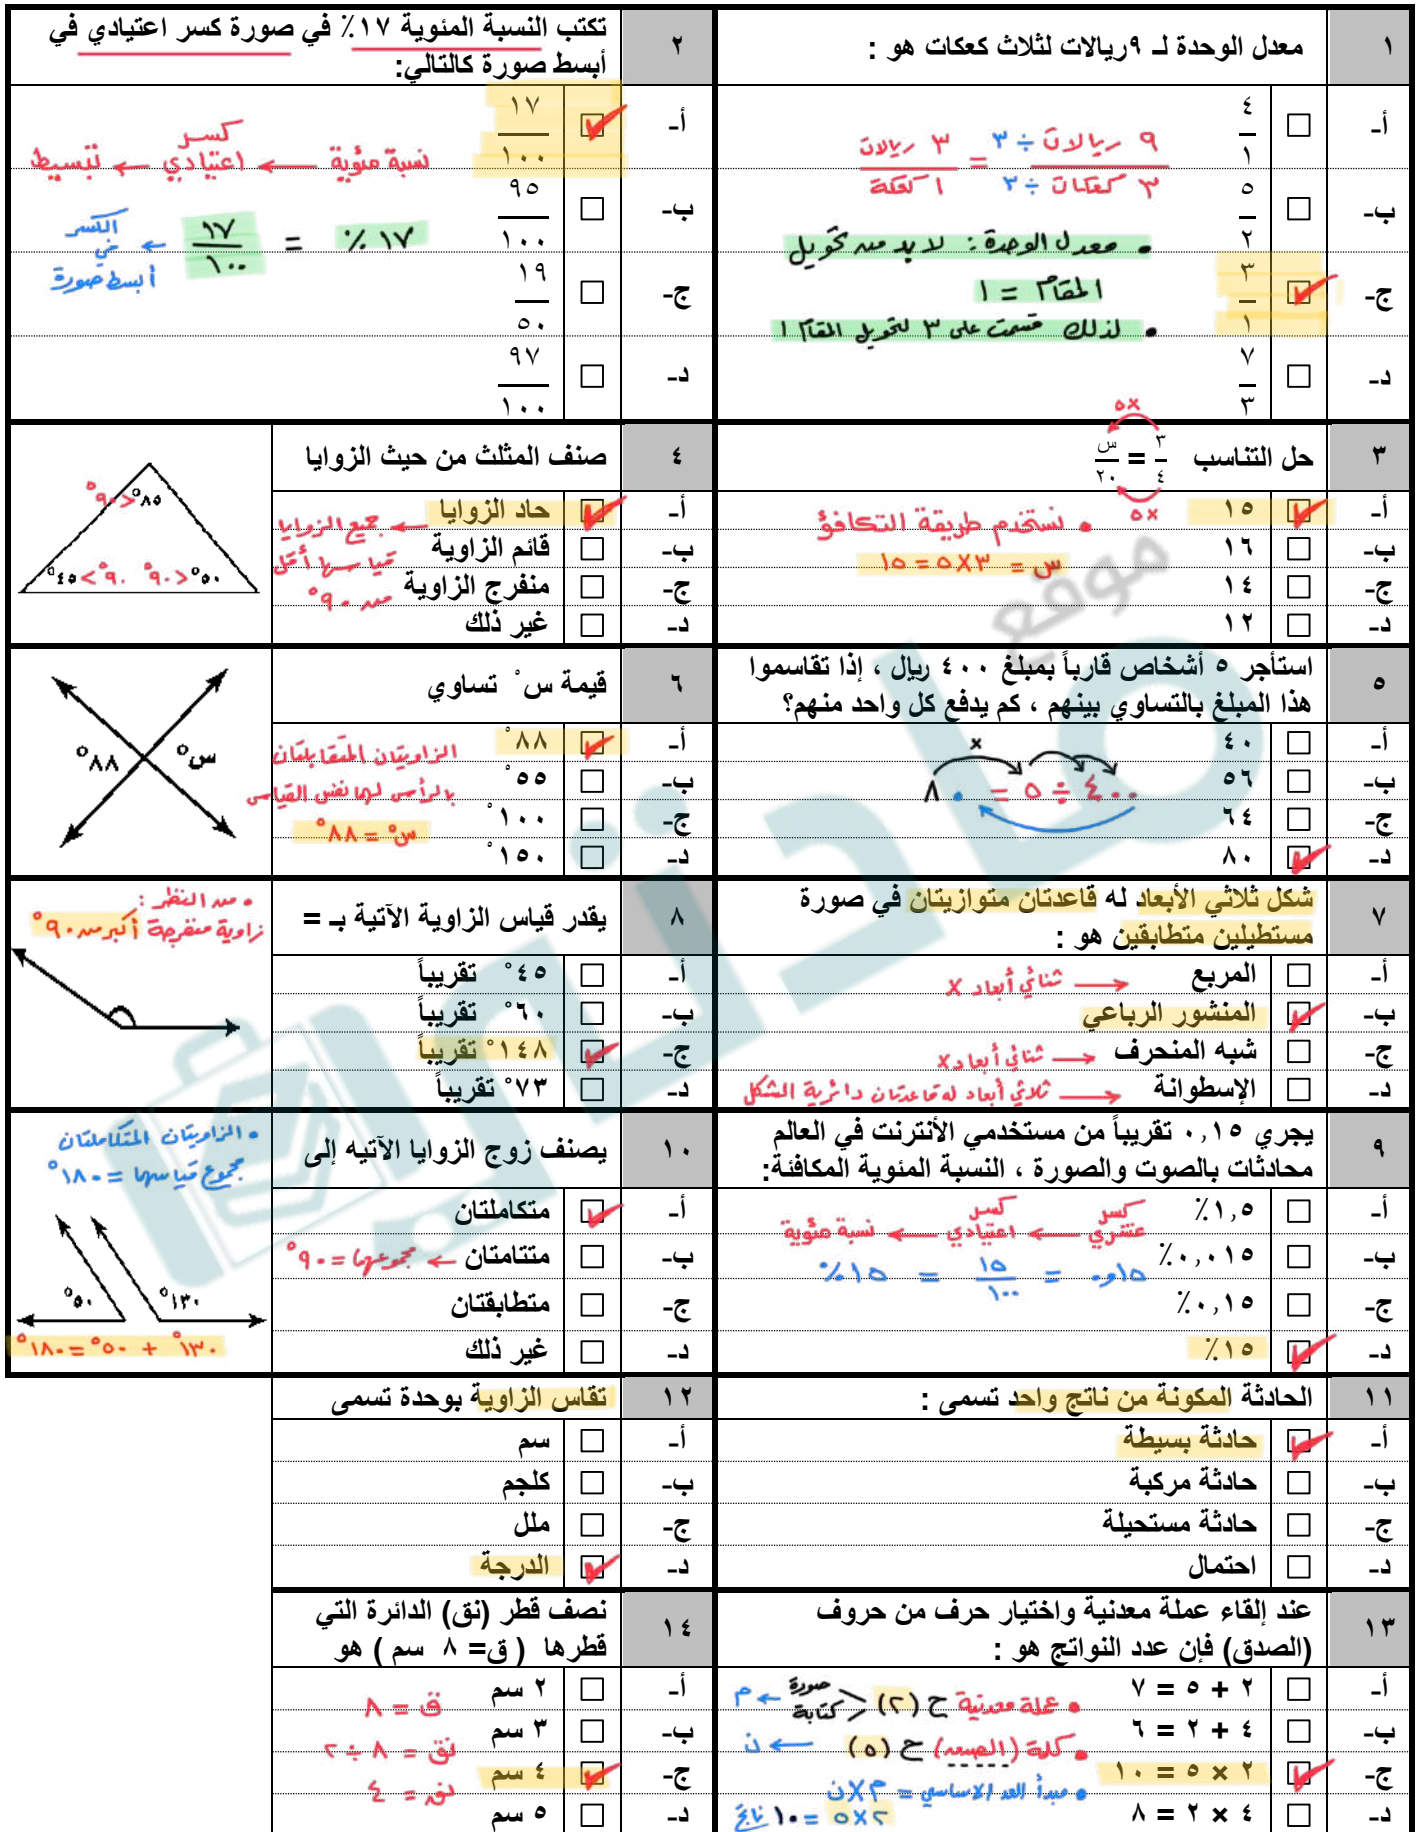 ١
معدل الوحدة لـ ٩ريالات لثلاث كعكات هو :
أ- ٤/١
ب- ٥/٢
ج- ٣/١
د- ٧/٣
٩ ريالات ÷ ٣ = ٣ ريالات
٣ كعكات ÷ ٣ ١ كعكة
• معدل الوحدة : لابد من تحويل
المقام = ١
• لذلك قسمت على ٣ لتحويل المقام ١
٢
تكتب النسبة المئوية ١٧٪ في صورة كسر اعتيادي في
أبسط صورة كالتالي:
أ- ١٧/١٠٠
ب- ٩٥/١٠٠
ج- ١٩/٥٠
د- ٩٧/١٠٠
نسبة مئوية ← كسر اعتيادي ← تبسيط
١٧ ٪ = ١٧/١٠٠ ← الكسر في
أبسط صورة
٣
حل التناسب ٣/٤ = س/٢٠
×٥
×٥
أ- ١٥
ب- ١٦
ج- ١٤
د- ١٢
• نستخدم طريقة التكافؤ
س = ٣×٥ = ١٥
٤
صنف المثلث من حيث الزوايا
أ- حاد الزوايا
ب- قائم الزاوية
ج- منفرج الزاوية
د- غير ذلك
← جميع الزوايا
قياسها أقل
من ٩٠°
٨٥° > ٩٠°
٥٠° > ٩٠° ٩٠° < ٤٥°
٥
استأجر ٥ أشخاص قارباً بمبلغ ٤٠٠ ريال ، إذا تقاسموا
هذا المبلغ بالتساوي بينهم ، كم يدفع كل واحد منهم؟
أ- ٤٠
ب- ٥٦
ج- ٦٤
د- ٨٠
×
٤٠٠ ÷ ٥ = ٨٠
٦
قيمة س° تساوي
أ- ٨٨°
ب- ٥٥°
ج- ١٠٠°
د- ١٥٠°
الزاويتان المتقابلتان
بالرأس لهما نفس القياس
س° = ٨٨°
س° ٨٨°
٧
شكل ثلاثي الأبعاد له قاعدتان متوازيتان في صورة
مستطيلين متطابقين هو :
أ- المربع ← ثنائي أبعاد ×
ب- المنشور الرباعي
ج- شبه المنحرف ← ثنائي أبعاد ×
د- الإسطوانة ← ثلاثي أبعاد له قاعدتان دائرية الشكل
٨
يقدر قياس الزاوية الآتية بـ =
أ- ٤٥° تقريباً
ب- ٦٠° تقريباً
ج- ١٤٨° تقريباً
د- ٧٣° تقريباً
• من النظر :
زاوية منفرجة أكبر من ٩٠°
٩
يجري ٠,١٥ تقريباً من مستخدمي الأنترنت في العالم
محادثات بالصوت والصورة ، النسبة المئوية المكافئة:
أ- ١,٥٪
ب- ٠,٠١٥٪
ج- ٠,١٥٪
د- ١٥٪
كسر عشري ← كسر اعتيادي ← نسبة مئوية
٠,١٥ = ١٥/١٠٠ = ١٥٪
١٠
يصنف زوج الزوايا الآتيه إلى
أ- متكاملتان
ب- متتامتان ← مجموعهما = ٩٠°
ج- متطابقتان
د- غير ذلك
• الزاويتان المتكاملتان
مجموع قياسهما = ١٨٠°
١٣٠° ٥٠°
١٣٠° + ٥٠° = ١٨٠°
١١
الحادثة المكونة من ناتج واحد تسمى :
أ- حادثة بسيطة
ب- حادثة مركبة
ج- حادثة مستحيلة
د- احتمال
١٢
تقاس الزاوية بوحدة تسمى
أ- سم
ب- كلجم
ج- ملل
د- الدرجة
١٣
عند إلقاء عملة معدنية واختيار حرف من حروف
(الصدق) فإن عدد النواتج هو :
أ- ٢ + ٥ = ٧
ب- ٤ + ٢ = ٦
ج- ٢ × ٥ = ١٠
د- ٤ × ٢ = ٨
• عملة معدنية ح (٢) صورة كتابة ← م
• كلمة (الصدق) ح (٥) ← ن
• مبدأ العد الاساسي = م×ن
٢×٥ = ١٠ ناتج
١٤
نصف قطر (نق) الدائرة التي
قطرها ( ق= ٨ سم ) هو
أ- ٢ سم
ب- ٣ سم
ج- ٤ سم
د- ٥ سم
ق = ٨
نق = ٨ ÷ ٢
نق = ٤
موقع
مادتي